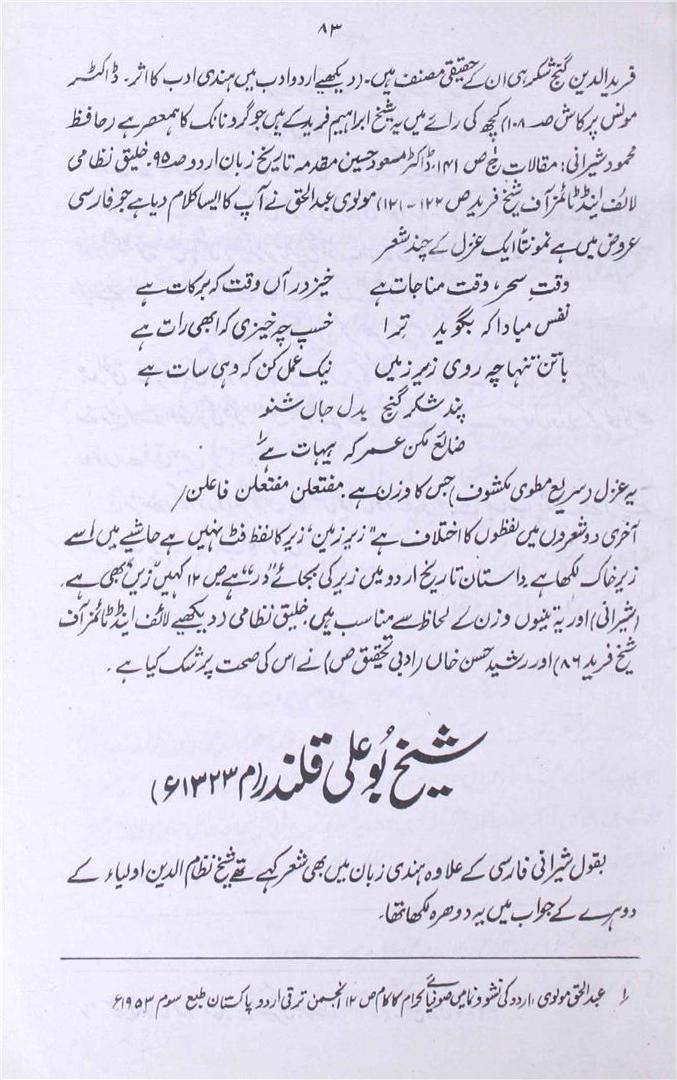 ۸۳
فرید الدین گنج شکر ہی ان کے حقیقی مصنف ہیں۔ (دیکھیے اردو ادب میں ہندی ادب کا اثر۔ ڈاکٹر
مونس پرکاش صـ ۱۰۸) کچھ کی رائے میں یہ شیخ ابراہیم فرید کے ہیں جو گرد نانک کا ہمعصر ہے (حافظ
محمود شیرانی: مقالات ج ص ۱۴۱، ڈاکٹر مسعود حسین مقدمہ تاریخ زبان اردو صد ۹۵۔ خلیق نظامی
لائف اینڈ ٹائمز آف شیخ فرید ص ۱۲۲ - ۱۲۱) مولوی عبدالحق نے آپ کا ایسا کلام دیا ہے جو فارسی
عروض میں ہے نمونتاً ایک غزل کے چند شعر
وقتِ سحر، وقت مناجات ہے خیز در آں وقت کہ برکات ہے
نفس مبادا کہ بگوید ترا خسپ چہ خیزی کہ ابھی رات ہے
باتن تنہا چہ روی زیر زمیں نیک عمل کن کہ وہی سات ہے
پند شکر گنج بدل جاں شنو
ضائع مکن عمر کہ ہیہات ہے ۱؎
یہ غزل (سریع مطوی مکشوف) جس کا وزن ہے۔ مفتعلن مفتعلن فاعلن /
آخری دو شعروں میں لفظوں کا اختلاف ہے "زیر زمین" زیر کا لفظ فٹ نہیں ہے حاشیے میں اسے
زیر خاک لکھا ہے۔ داستان تاریخ اردو میں زیر کی بجائے "در" ہے ص ۱۲ کہیں "زین" بھی ہے۔
(شیرانی) اور یہ تینوں وزن کے لحاظ سے مناسب ہیں۔ خلیق نظامی (دیکھیے لائف اینڈ ٹائمز آف
شیخ فرید ۸۶) اور رشید حسن خاں (ادبی تحقیق ص) نے اس کی صحت پر شک کیا ہے۔
شیخ بُو علی قلندر (م ۱۳۲۳ء)
بقول شیرانی فارسی کے علاوہ ہندی زبان میں بھی شعر کہے تھے شیخ نظام الدین اولیاء کے
دوہرے کے جواب میں یہ دوھرہ لکھا تھا۔
۱؎ عبدالحق مولوی، اردو کی نشو و نما میں صوفیائے کرام کا کام ص ۱۲ انجمن ترقی اردو پاکستان طبع سوم ۱۹۵۳ء